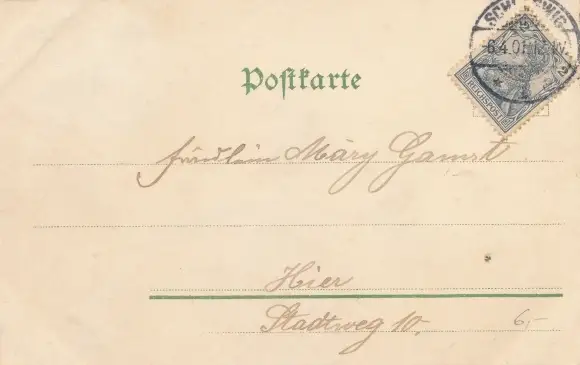 SCHLESWIG
6.4.01.
REICHSPOST
Postkarte
Fräulein Märy
Hier
Stadtweg 10.
6,-